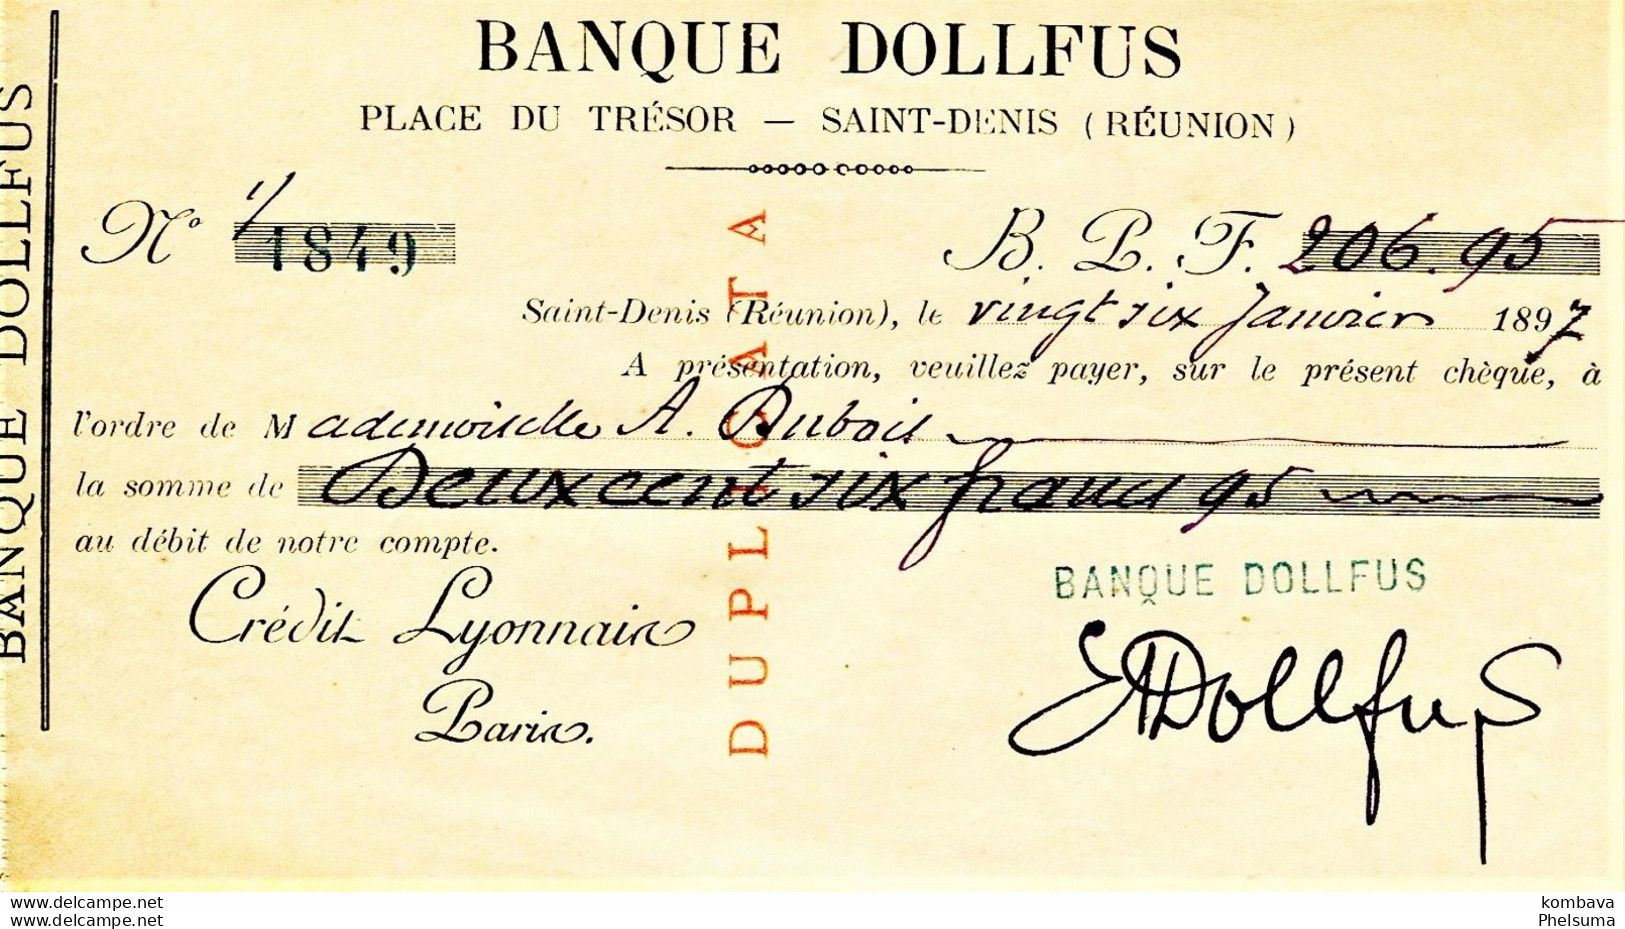 BANQUE DOLLFUS
BANQUE DOLLFUS
PLACE DU TRÉSOR — SAINT-DENIS (RÉUNION)
N° 1/1849
B. P. F. 206.95
Saint-Denis (Réunion), le vingt six Janvier 1897
A présentation, veuillez payer, sur le présent chèque, à
l'ordre de Mademoiselle A. Dubois
la somme de Deux cent six francs 95
au débit de notre compte.
DUPLICATA
BANQUE DOLLFUS
Crédit Lyonnais
Paris.
EADollfus
www.delcampe.net
www.delcampe.net
kombava
Phelsuma